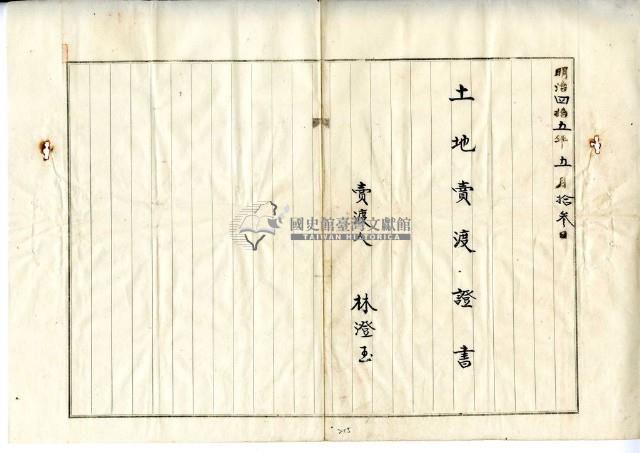 明治四拾五年五月拾参日
土地賣渡證書
賣渡人 林澄玉
國史館臺灣文獻館
TAIWAN HISTORICA
215